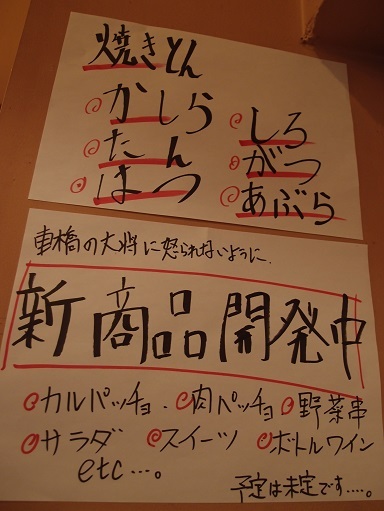 焼きとん
かしら
たん
はつ
しろ
がつ
あぶら
車橋の大将に怒られないように、
新商品開発中
カルパッチョ．肉ペッチョ 野菜串
サラダ スイーツ ボトルワイン
etc…。
予定は未定です…。